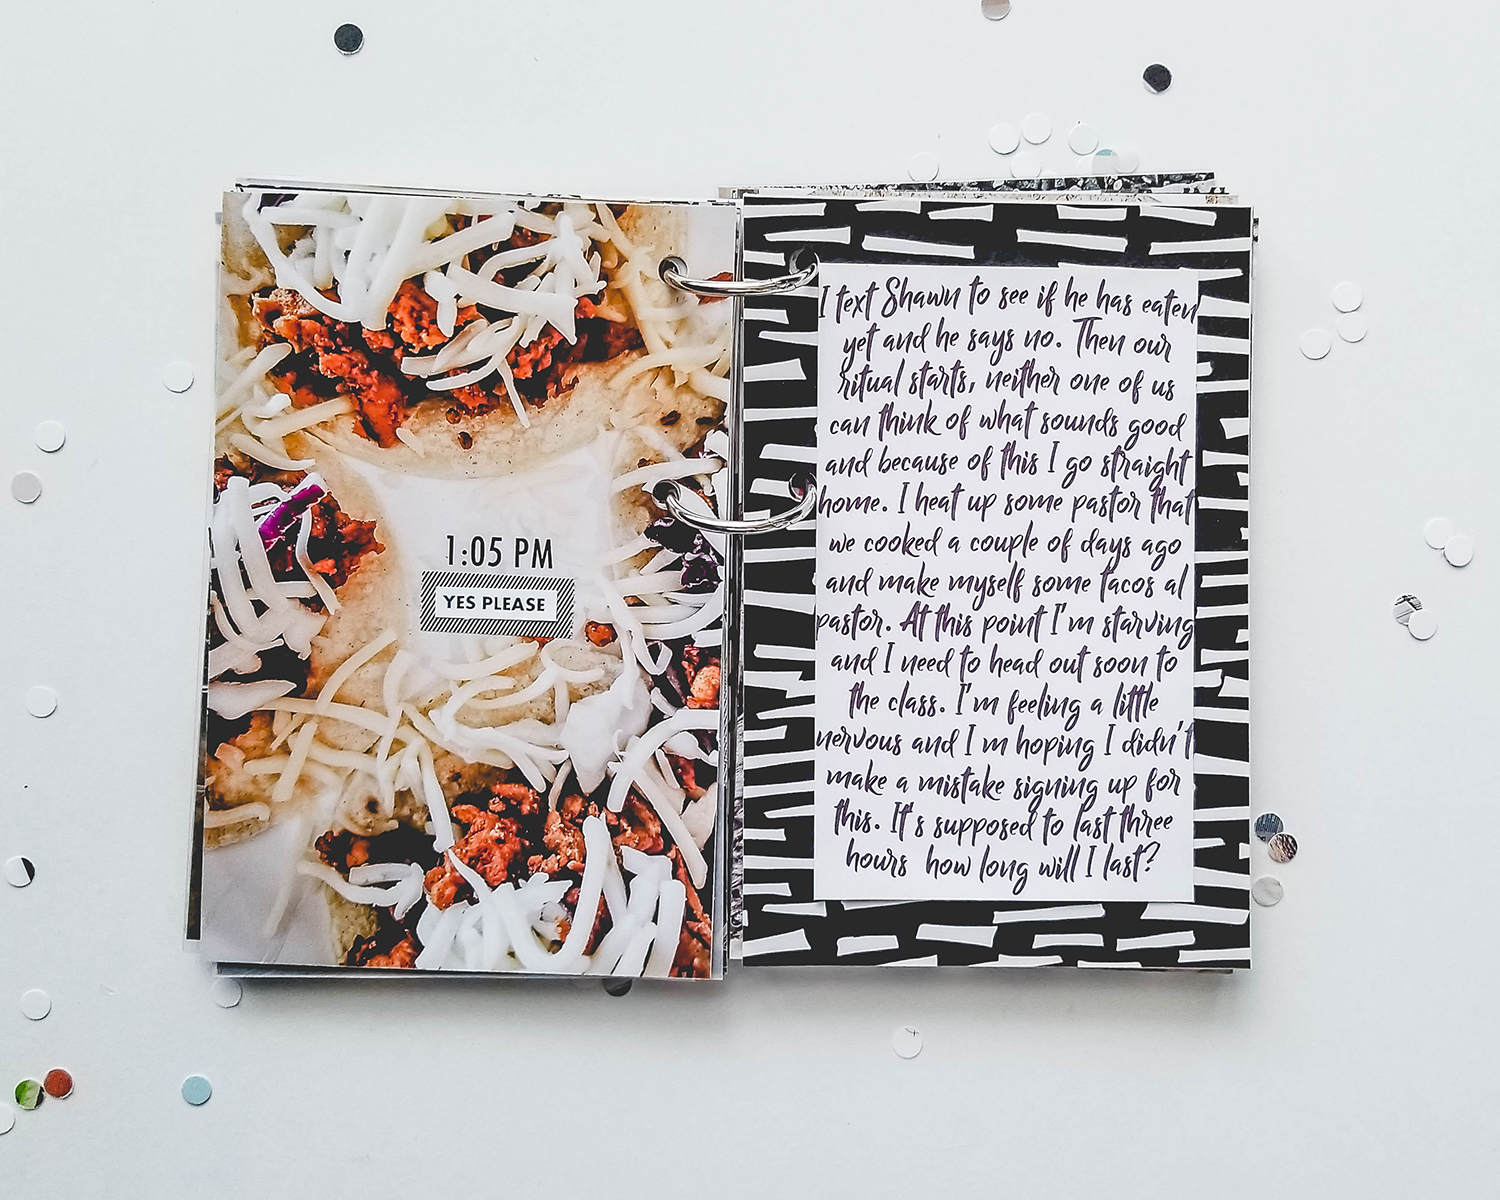 1:05 PM
YES PLEASE
I text Shawn to see if he has eaten
yet and he says no. Then our
ritual starts, neither one of us
can think of what sounds good
and because of this I go straight
home. I heat up some pastor that
we cooked a couple of days ago
and make myself some tacos al
pastor. At this point I'm starving
and I need to head out soon to
the class. I'm feeling a little
nervous and I'm hoping I didn't
make a mistake signing up for
this. It's supposed to last three
hours how long will I last?